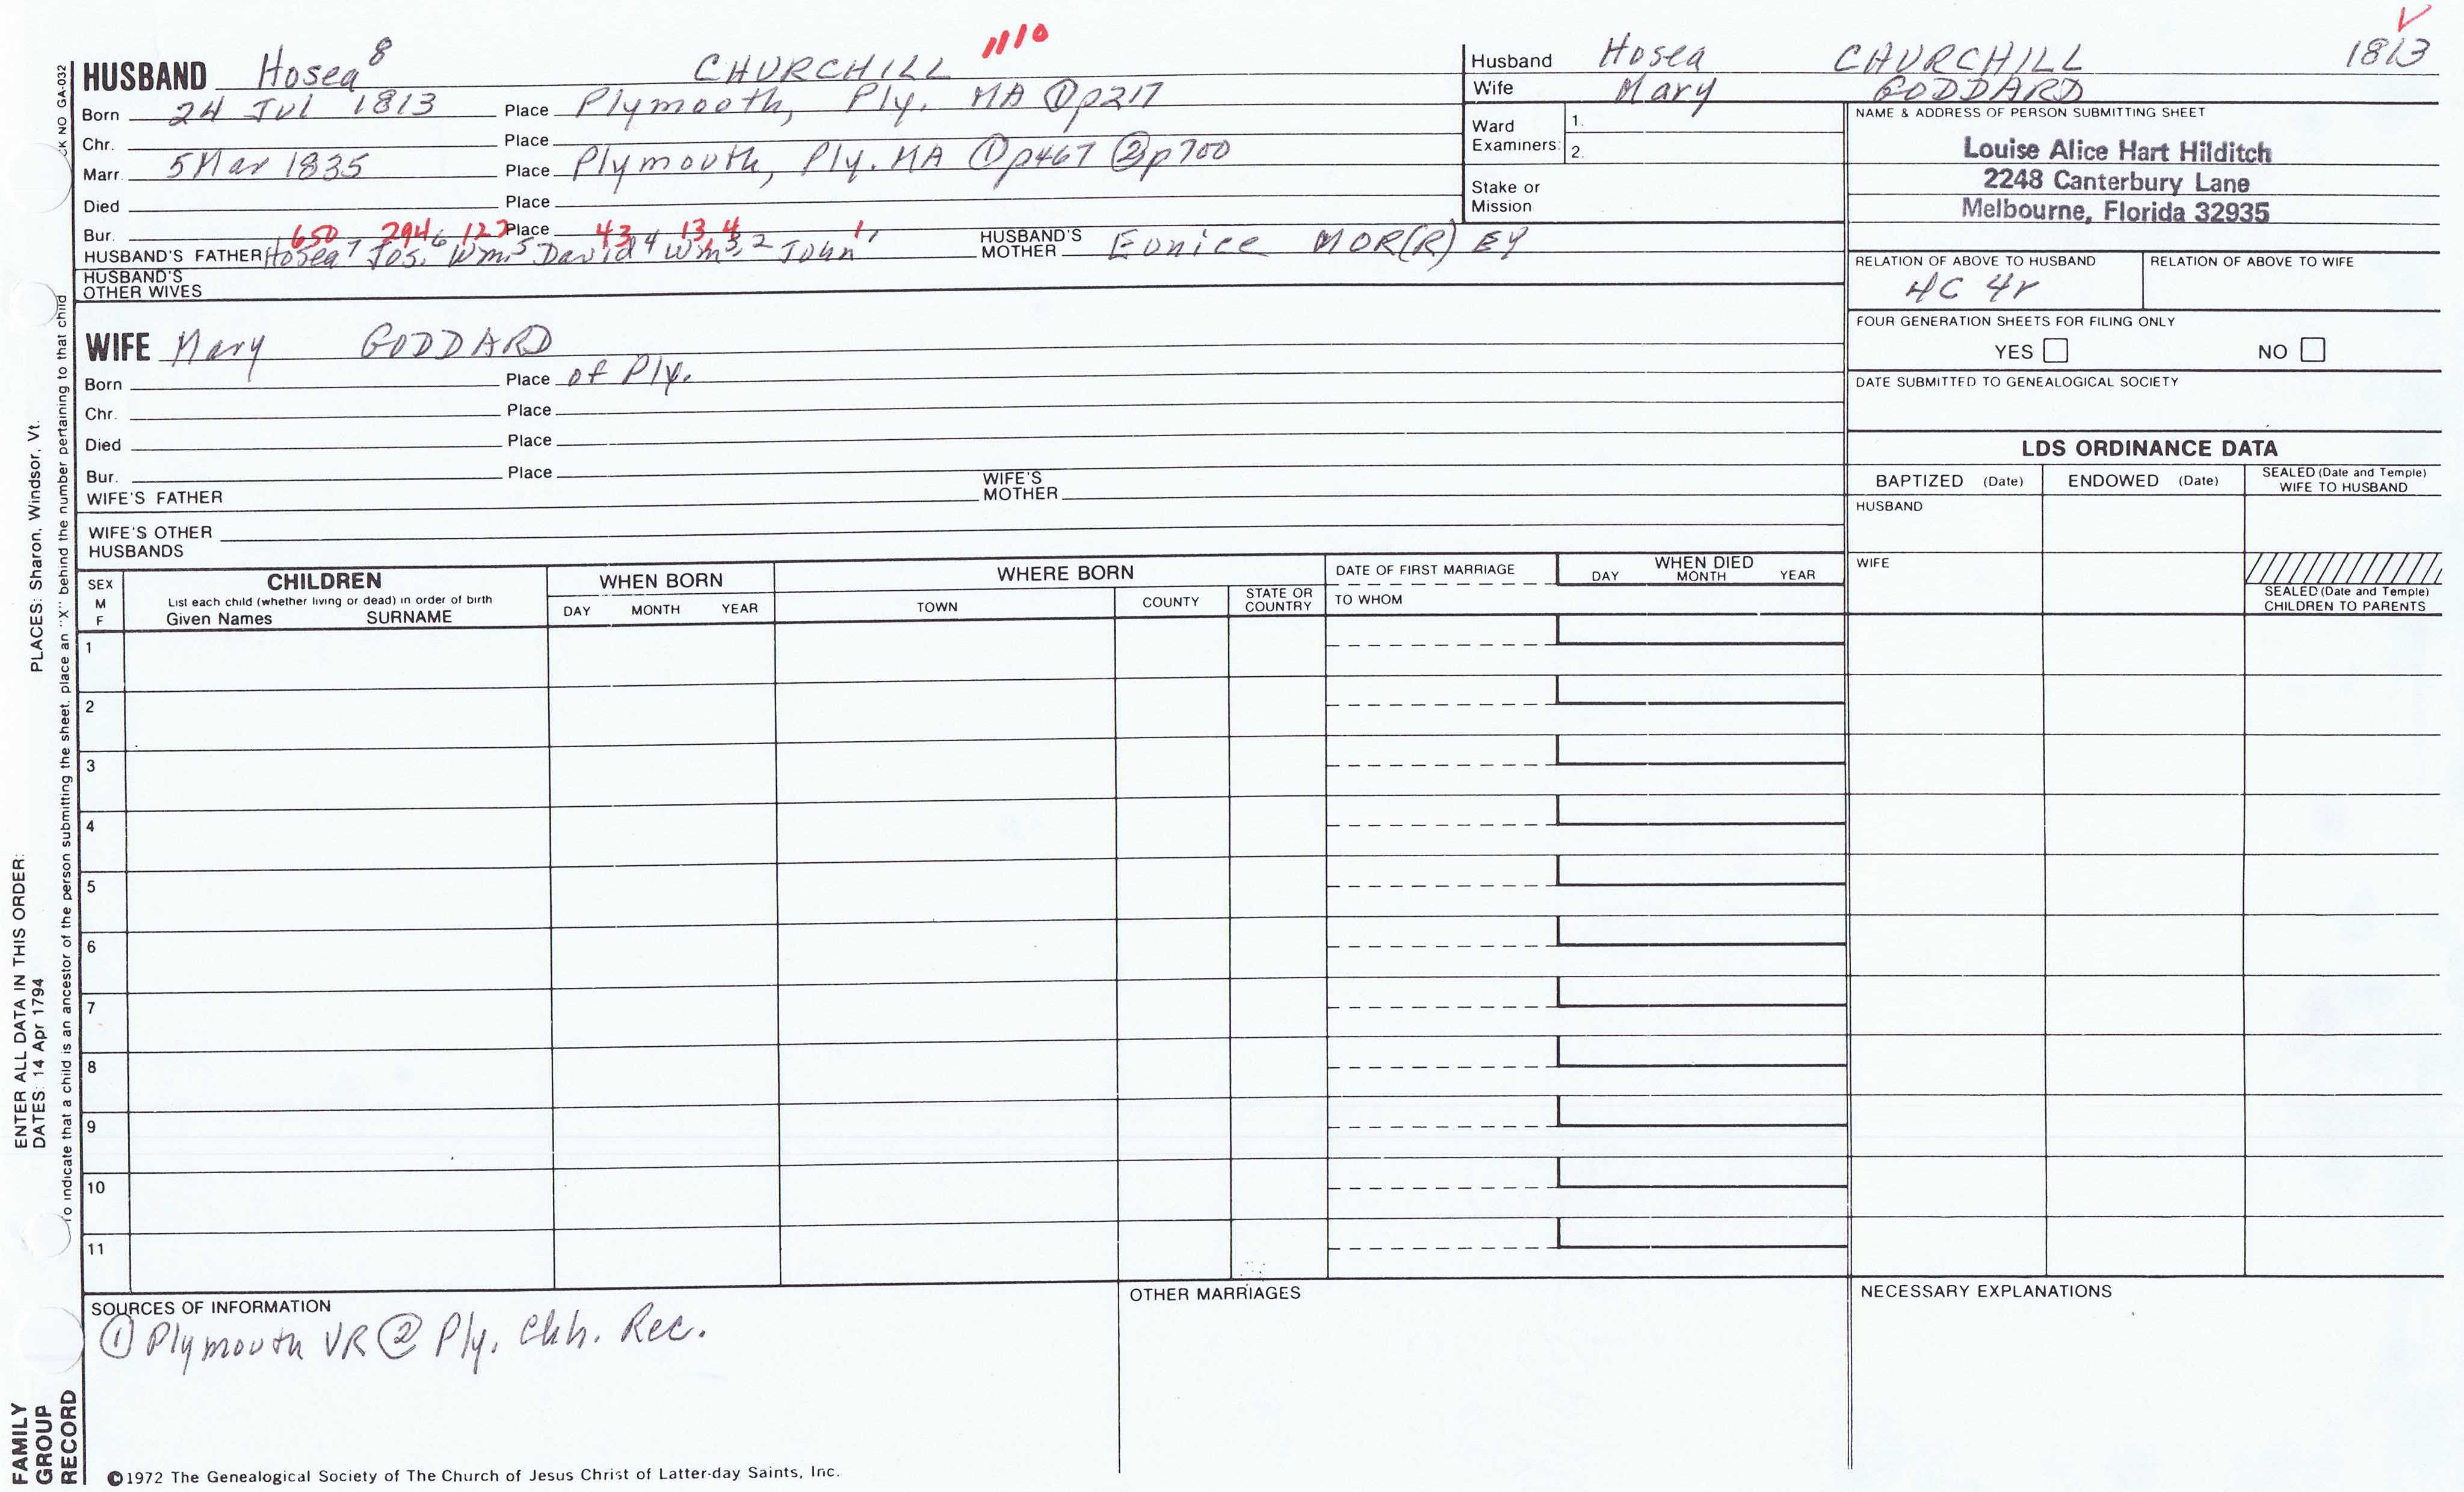 HUSBAND Hosea 8 CHURCHILL 1110
Born 24 Jul 1813 Place Plymouth, Ply. MA ① p217
Chr. Place
Marr. 5 Mar 1835 Place Plymouth, Ply. MA ① p467 ② p700
Died Place
Bur. Place
650 294 122 43 13 4 1
HUSBAND'S FATHER Hosea 7 Jos. 6 Wm. 5 David 4 Wm. 3, 2 John 1 HUSBAND'S MOTHER Eunice MOR(R)EY
HUSBAND'S OTHER WIVES
WIFE Mary GODDARD
Born Place of Ply.
Chr. Place
Died Place
Bur. Place
WIFE'S FATHER WIFE'S MOTHER
WIFE'S OTHER HUSBANDS
Husband Hosea CHURCHILL 1813
Wife Mary GODDARD
Ward Examiners: 1.
2.
Stake or Mission
NAME & ADDRESS OF PERSON SUBMITTING SHEET
Louise Alice Hart Hilditch
2248 Canterbury Lane
Melbourne, Florida 32935
RELATION OF ABOVE TO HUSBAND RELATION OF ABOVE TO WIFE
4C 4r
FOUR GENERATION SHEETS FOR FILING ONLY
YES NO
DATE SUBMITTED TO GENEALOGICAL SOCIETY
LDS ORDINANCE DATA
BAPTIZED (Date) ENDOWED (Date) SEALED (Date and Temple) WIFE TO HUSBAND
HUSBAND
WIFE
SEALED (Date and Temple) CHILDREN TO PARENTS
SEX M F
CHILDREN
List each child (whether living or dead) in order of birth
Given Names SURNAME
WHEN BORN
DAY MONTH YEAR
WHERE BORN
TOWN COUNTY STATE OR COUNTRY
DATE OF FIRST MARRIAGE
TO WHOM
WHEN DIED
DAY MONTH YEAR
1
2
3
4
5
6
7
8
9
10
11
SOURCES OF INFORMATION
① Plymouth VR ② Ply. Chh. Rec.
OTHER MARRIAGES
NECESSARY EXPLANATIONS
©1972 The Genealogical Society of The Church of Jesus Christ of Latter-day Saints, Inc.
FAMILY GROUP RECORD
ENTER ALL DATA IN THIS ORDER:
DATES: 14 Apr 1794 PLACES: Sharon, Windsor, Vt.
To indicate that a child is an ancestor of the person submitting the sheet, place an "X" behind the number pertaining to that child
CK NO GA-032